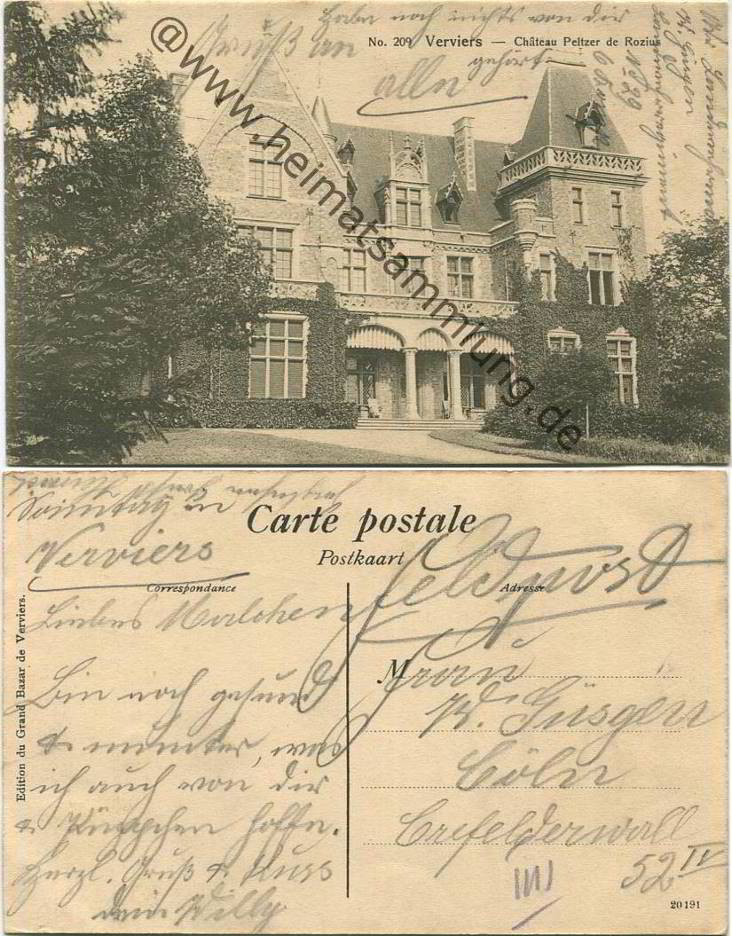 No. 209 Verviers — Château Peltzer de Rozius
Habe noch nichts von dir
gehört
Gruß an
alle
@www.heimatsammlung.de
Carte postale
Postkaart
Correspondance
Adresse
Edition du Grand Bazar de Verviers.
Sonntag in
Verviers
Liebes Malchen
Bin noch gesund
& munter, was
ich auch von dir
& Püppchen hoffe.
Herzl. Gruß & Kuss
dein Willy
Feldpost
M
Frau
W. Güsgen
Cöln
Crefelderwall
52 IV
20191